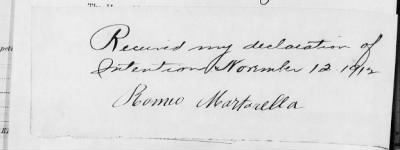 Received my declaration of
Intention November 12 1912
Romeo Martarella